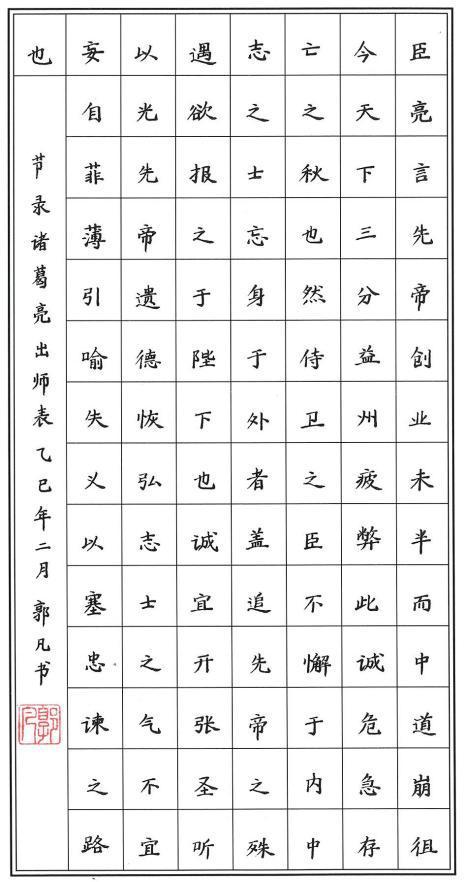 臣亮言先帝创业未半而中道崩徂
今天下三分益州疲弊此诚危急存
亡之秋也然侍卫之臣不懈于内中
志之士忘身于外者盖追先帝之殊
遇欲报之于陛下也诚宜开张圣听
以光先帝遗德恢弘志士之气不宜
妄自菲薄引喻失义以塞忠谏之路
也
节录诸葛亮出师表乙巳年二月郭凡书
郭凡